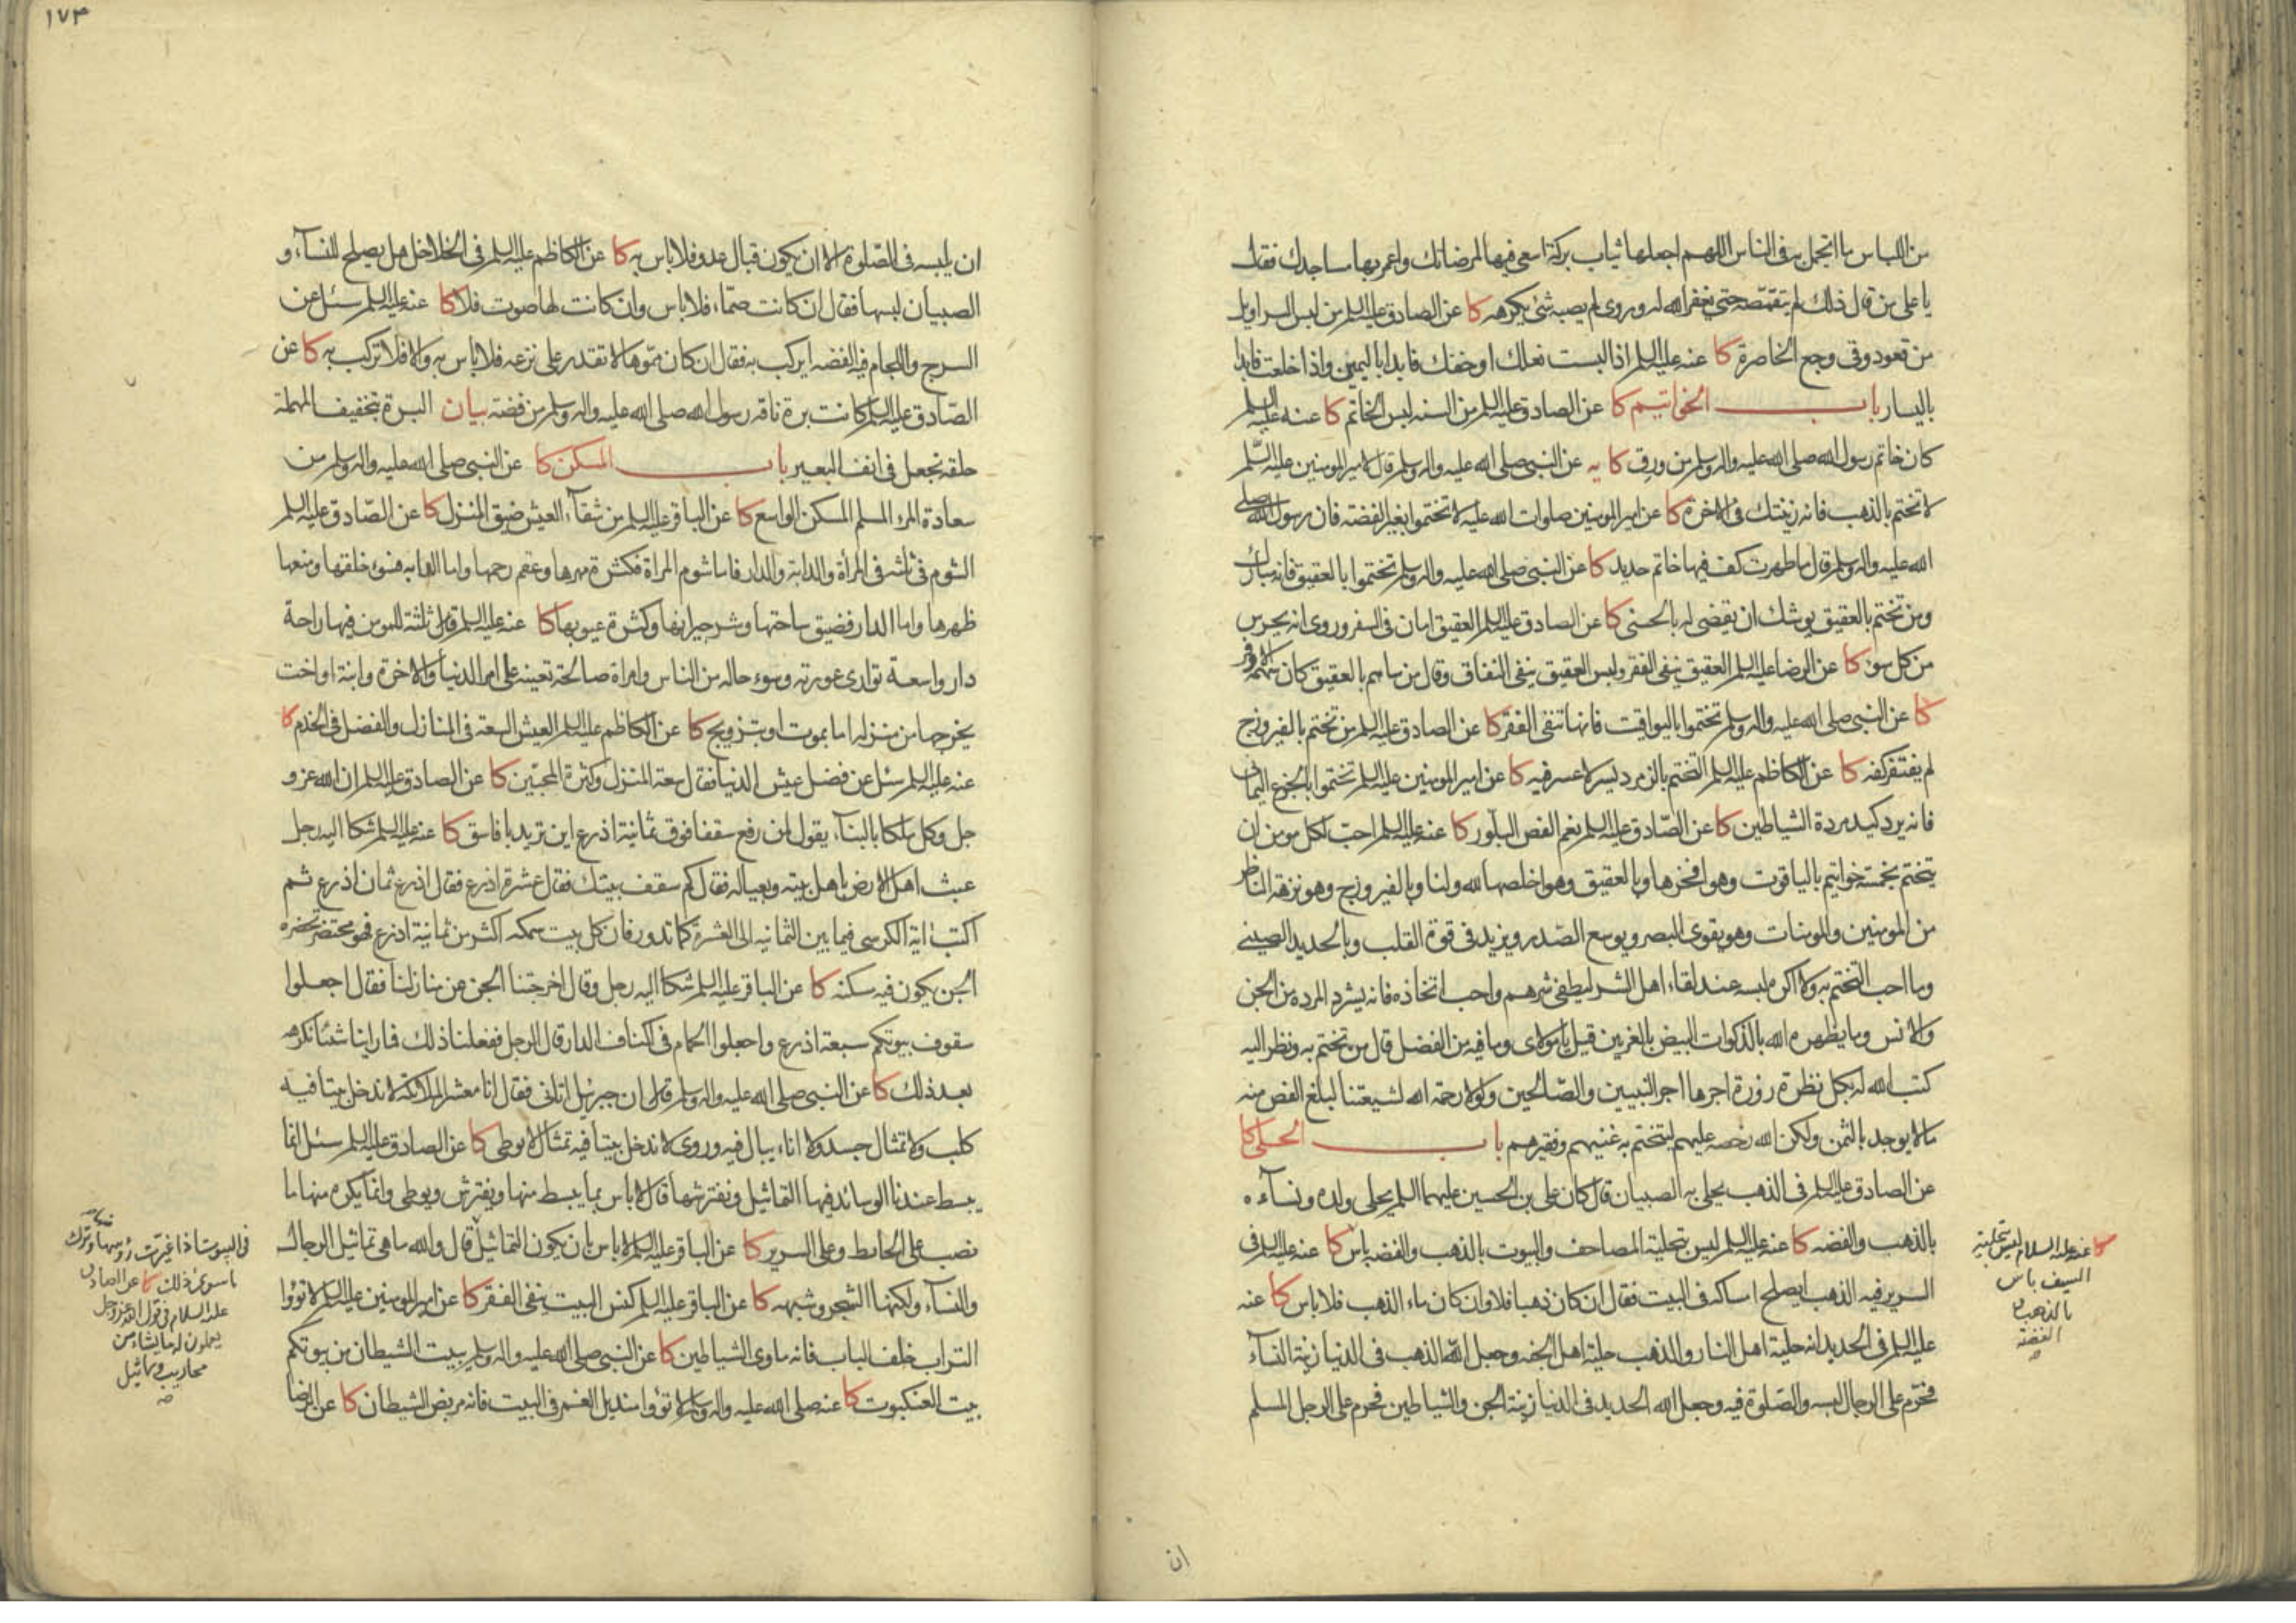 من اللباس ما اتجمل به فى الناس اللهم اجعلها ثياب بركة اسعى فيها لمرضاتك واعمر بها مساجدك فقال
يا على من قال ذلك لم يتقمصه حتى يغفر الله له وروى لم يصبه شئ يكرهه كا عن الصادق عليه السلم من لبس السراويل
من قعود وقى وجع الخاصرة كا عنه عليه السلم اذا لبست نعلك او خفك فابدا باليمين واذا خلعت فابدا
باليسار باب الخواتيم كا عن الصادق عليه السلم من السنه لبس الخاتم كا عنه عليه السلم
كان خاتم رسول الله صلى الله عليه واله وسلم من ورق كا يه عن النبى صلى الله عليه واله وسلم قال لامير المومنين عليه السّلم
لا تختم بالذهب فانه زينتك فى الاخرة كا عن امير المومنين صلوات الله عليه لا تختموا بغير الفضه فان رسول الله صلى
الله عليه واله وسلم قال ما طهرت كف فيها خاتم حديد كا عن النبى صلى الله عليه واله وسلم تختموا بالعقيق فانه مبارك
ومن تختم بالعقيق يوشك ان يقضى له بالحسنى كا عن الصادق عليه السلم العقيق امان فى السفر وروى انه يحرس
من كل سوء كا عن الرضا عليه السلم العقيق ينفى الفقر ولبس العقيق ينفى النفاق وقال من ساهم بالعقيق كان سهمه الاوفر
كا عن النبى صلى الله عليه واله وسلم تختموا باليواقيت فانها تنفى الفقر كا عن الصادق عليه السلم من تختم بالفيروزج
لم يفتقر كفه كا عن الكاظم عليه السلم التختم بالزمرد يسر لا عسر فيه كا عن امير المومنين عليه السلم تختموا بالجزع اليمانى
فانه يرد كيد مردة الشياطين كا عن الصّادق عليه السلم نعم الفص البلّور كا عنه عليه السلم احب لكل مومن ان
يتختم بخمسة خواتيم بالياقوت وهو افخرها وبالعقيق وهو اخلصها لله ولنا وبالفيروزج وهو نزهة الناظر
من المومنين والمومنات وهو يقوى البصر ويوسع الصّدر ويزيد فى قوة القلب وبالحديد الصينى
وما احب التختم به ولا اكره لبسه عند لقاء اهل الشر ليطفى شرهم واحب اتخاذه فانه يشرد المرده من الجن
والانس وما يظهره الله بالذكوات البيض بالغريين قيل يا مولاى وما فيه من الفضل قال من تختم به ونظر اليه
كتب الله له بكل نظرة زورة اجرها اجر النبيين والصّالحين ولولا رحمة الله لشيعتنا لبلغ الفص منه
ما لا يوجد بالثمن ولكن الله رخصه عليهم ليتختم به غنيهم وفقيرهم باب الحلى كا
عن الصادق عليه السلم فى الذهب يحلى به الصبيان قال كان على بن الحسين عليهما السلم يحلى ولده ونسآءه
بالذهب والفضه كا عنه عليه السلم ليس بتحلية المصاحف والبيوت بالذهب والفضه باس كا عنه عليه السلم فى
السرير فيه الذهب ايصلح امساكه فى البيت فقال ان كان ذهبا فلا وان كان ماء الذهب فلا باس كا عنه
عليه السلم فى الحديد انه حلية اهل النار والذهب حلية اهل الجنه وجعل الله الذهب فى الدنيا زينة النسآء
فحرّم على الرجال لبسه والصّلوة فيه وجعل الله الحديد فى الدنيا زينة الجن والشياطين فحرم على الرجل المسلم
كا عنه عليه السلام ليس بتحلية
السيف باس
بالذهب و
الفضة
ان
١٧٣
ان يلبسه فى الصّلوة الا ان يكون قبال عدو فلا باس به كا عن الكاظم عليه السلم فى الخلاخل هل يصلح للنسآء و
الصبيان لبسها فقال ان كانت صمّاء فلا باس وان كانت لها صوت فلا كا عنه عليه السلم سئل عن
السرج واللجام فيه الفضه ايركب به فقال ان كان مموها لا تقدر على نزعه فلا باس به والا فلا تركب به كا عن
الصّادق عليه السلم كانت برة ناقه رسول الله صلى الله عليه واله وسلم من فضة بيان البرة بتخفيف المهملة
حلقه تجعل فى انف البعير باب المسكن كا عن النبى صلى الله عليه واله وسلم من
سعادة المرء المسلم المسكن الواسع كا عن الباقر عليه السلم من شقآء العيش ضيق المنزل كا عن الصّادق عليه السلم
الشوم فى ثلثه فى المرأة والدابة والدار فاما شوم المراة فكثرة مهرها وعقم رحمها واما الدابه فسوء خلقها ومنعها
ظهرها واما الدار فضيق ساحتها وشر جيرانها وكثرة عيوبها كا عنه عليه السلم قال ثلثة للمومن فيها راحة
دار واسعة توارى عورته وسوء حاله من الناس وامراة صالحة تعينه على امر الدنيا والاخرة وابنة او اخت
يخرجها من منزله اما بموت او بتزويج كا عن الكاظم عليه السلم العيش السعة فى المنازل والفضل فى الخدم كا
عنه عليه السلم سئل عن فضل عيش الدنيا فقال سعة المنزل وكثرة المحبّين كا عن الصادق عليه السلم ان الله عز و
جل وكل ملكا بالبنآء يقول لمن رفع سقفا فوق ثمانية اذرع اين تريد يا فاسق كا عنه عليه السلم شكا اليه رجل
عبث اهل الارض باهل بيته وبعياله فقال كم سقف بيتك فقال عشرة اذرع فقال اذرع ثمان اذرع ثم
اكتب اية الكرسى فيما بين الثمانيه الى العشرة كما تدور فان كل بيت سمكه اكثر من ثمانية اذرع فهو محتضر تحضره
الجن يكون فيه سكنه كا عن الباقر عليه السلم شكا اليه رجل وقال اخرجتنا الجن من منازلنا فقال اجعلوا
سقوف بيوتكم سبعة اذرع واجعلوا الحمام فى اكناف الدار قال الرجل ففعلنا ذلك فما راينا شيئا نكرهه
بعد ذلك كا عن النبى صلى الله عليه واله وسلم قال ان جبرئيل اتانى فقال انا معشر الملائكة لا ندخل بيتا فيه
كلب ولا تمثال جسد ولا اناء يبال فيه وروى لا ندخل بيتا فيه تمثال لا يوطى كا عن الصادق عليه السلم سئل انما
يبسط عندنا الوسائد فيها التماثيل ونفترشها قال لا باس بما يبسط منها ويفترش ويوطى وانما يكره منها ما
نصب على الحايط وعلى السرير كا عن الباقر عليه السلم لا باس بان يكون التماثيل قال والله ما هى تماثيل الرجال
والنسآء ولكنها الشجر وشبهه كا عن الباقر عليه السلم كنس البيت ينفى الفقر كا عن امير المومنين عليه السلم لا تووا
التراب خلف الباب فانه ماوى الشياطين كا عن النبى صلى الله عليه واله وسلم بيت الشيطان من بيوتكم
بيت العنكبوت كا عنه صلى الله عليه واله وسلم لا تووا منديل الغمر فى البيت فانه مربض الشيطان كا عن الرضا
فى البيوت اذا غيرت رؤسها وترك
ما سوى ذلك كا عن الصادق
عليه السلام فى قول الله عز وجل
يعملون له ما يشاء من
محاريب وتماثيل